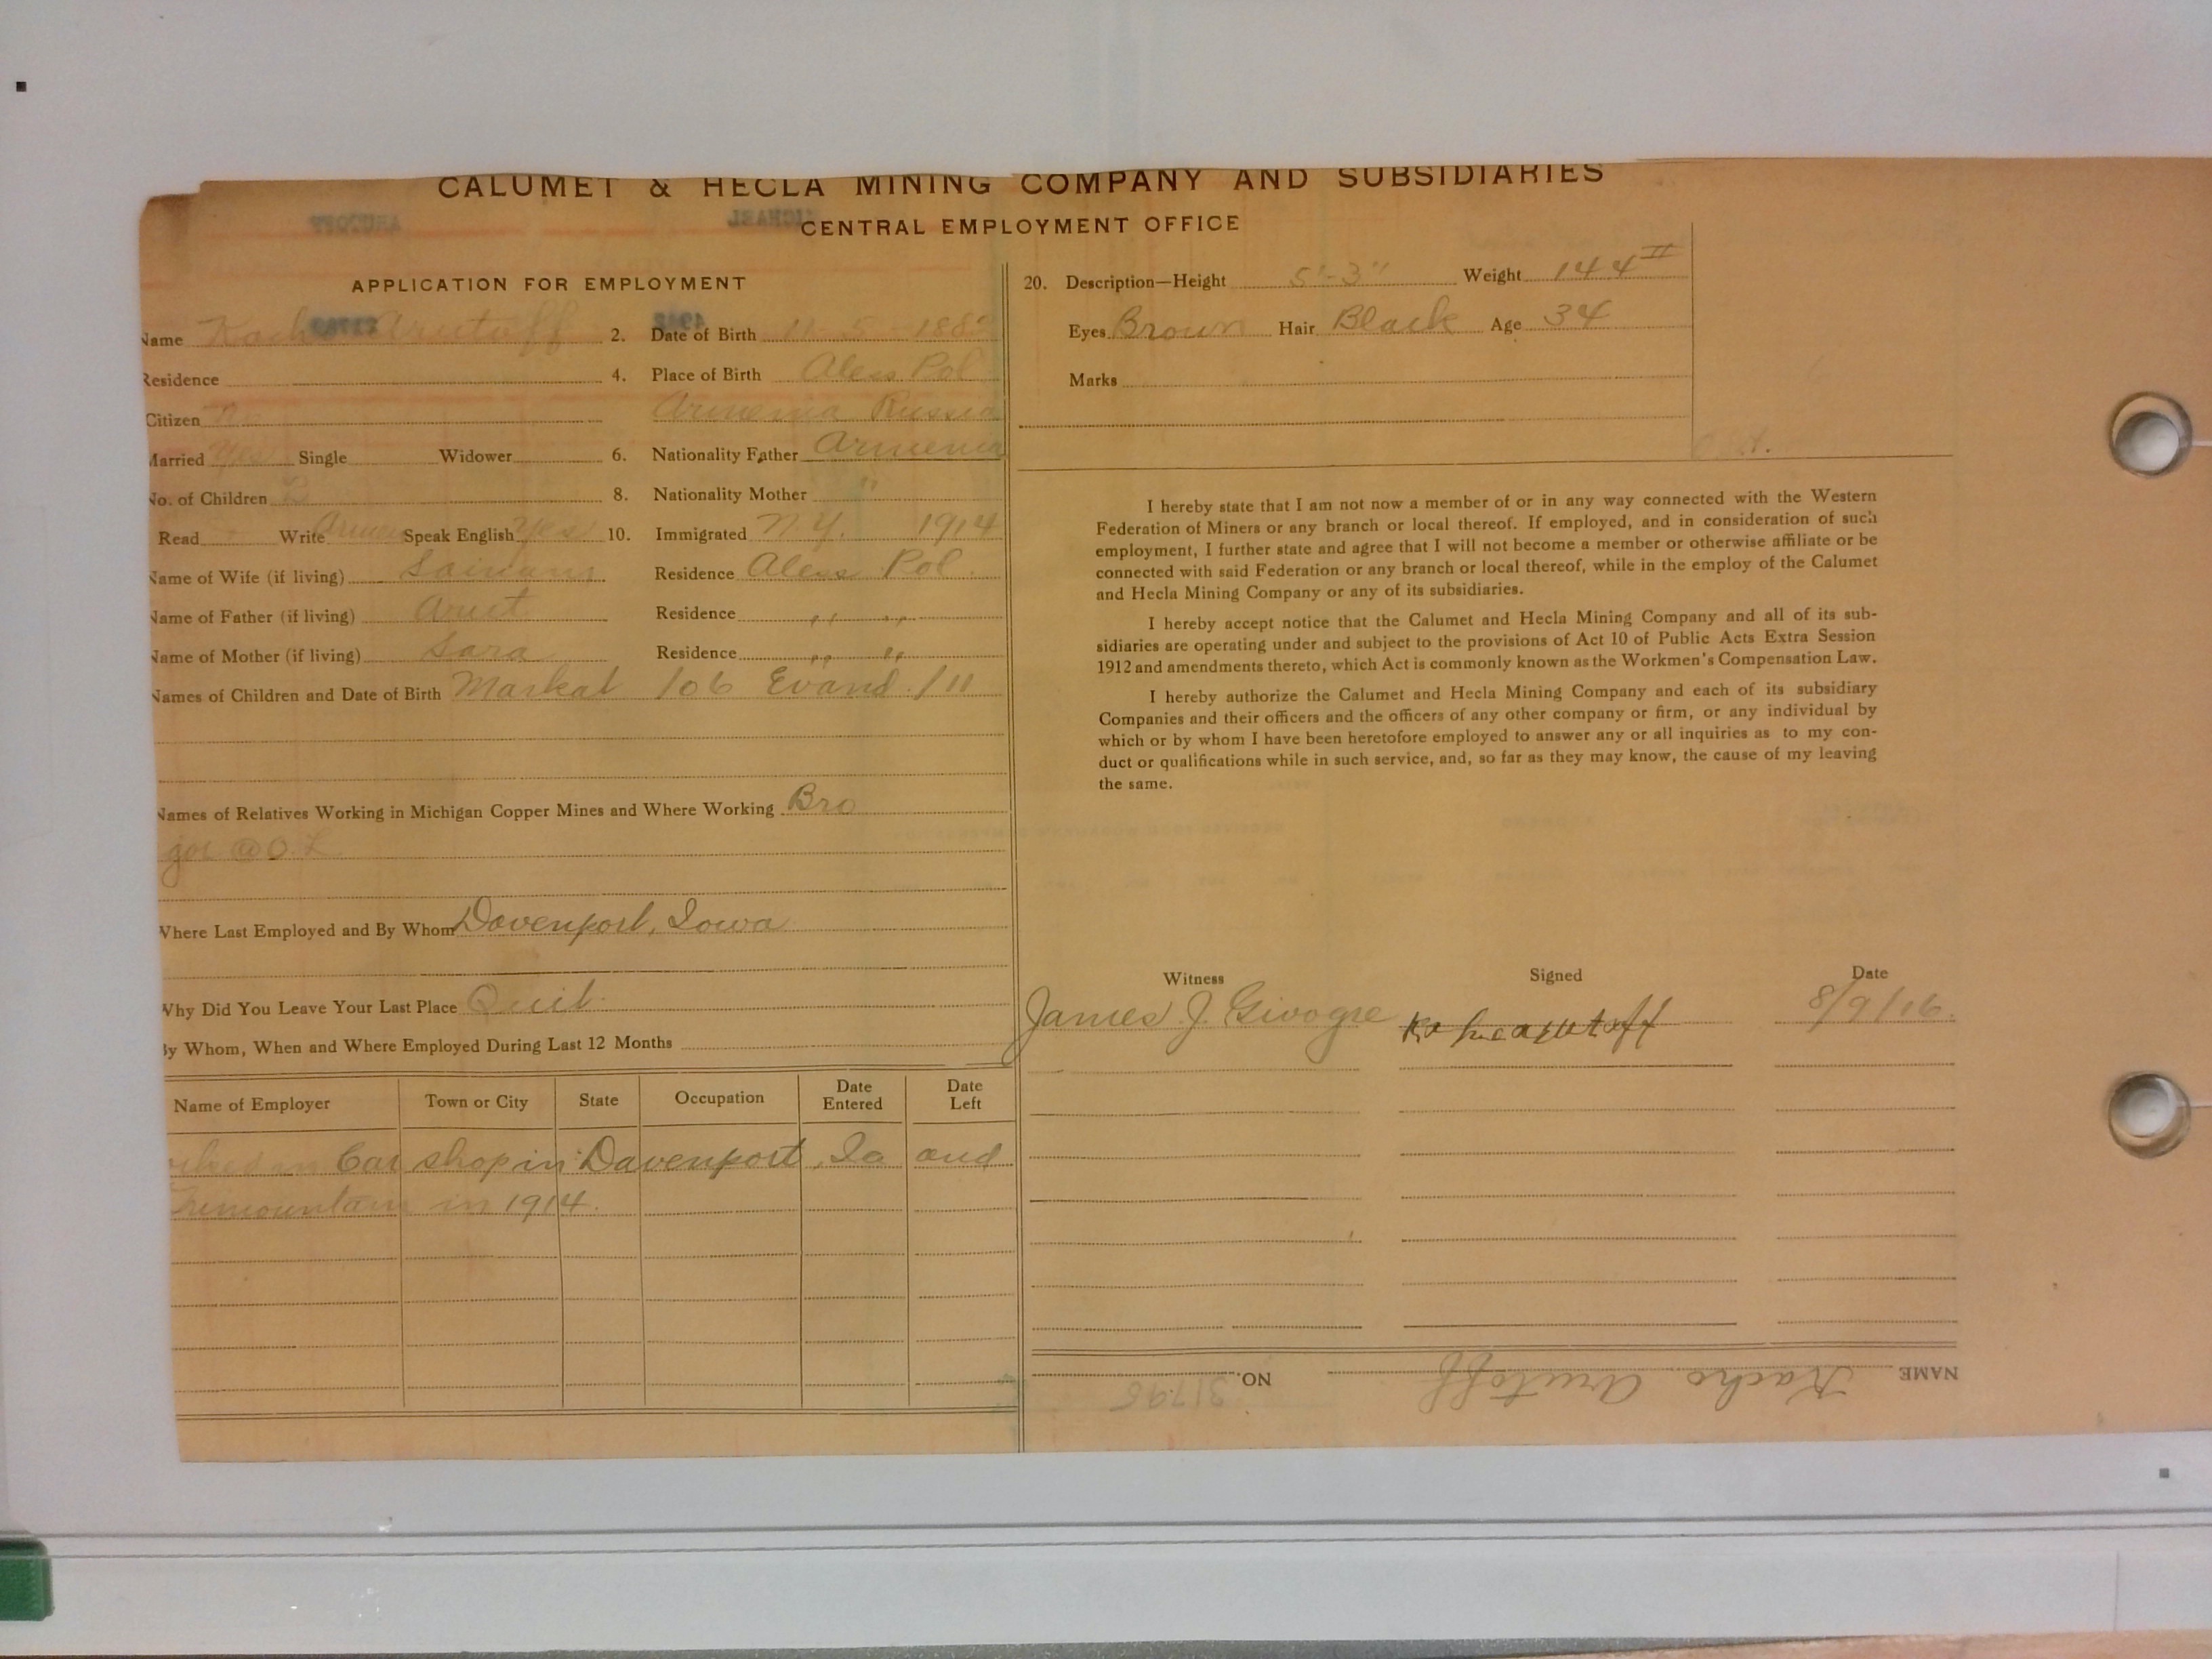 CALUMET & HECLA MINING COMPANY AND SUBSIDIARIES
CENTRAL EMPLOYMENT OFFICE
APPLICATION FOR EMPLOYMENT
Name Kacho Arutoff 2. Date of Birth 11-5 188
Residence 4. Place of Birth Alexs Pol
Citizen No Armenia Russia
Married Yes Single Widower 6. Nationality Father Armenia
No. of Children 2 8. Nationality Mother "
Read Write Armen Speak English Yes 10. Immigrated N.Y. 1914
Name of Wife (if living) Residence Alexs Pol.
Name of Father (if living) Arut Residence " "
Name of Mother (if living) Sara Residence " "
Names of Children and Date of Birth Markat /06 Evand. /11
Names of Relatives Working in Michigan Copper Mines and Where Working Bro
gor @ O.L
Where Last Employed and By Whom Davenport, Iowa
Why Did You Leave Your Last Place Quit.
By Whom, When and Where Employed During Last 12 Months
Name of Employer Town or City State Occupation Date Entered Date Left
in Car shop in Davenport, Ia and
Trimountain in 1914.
20. Description—Height 5'-3" Weight 144
Eyes Brown Hair Black Age 34
Marks
I hereby state that I am not now a member of or in any way connected with the Western
Federation of Miners or any branch or local thereof. If employed, and in consideration of such
employment, I further state and agree that I will not become a member or otherwise affiliate or be
connected with said Federation or any branch or local thereof, while in the employ of the Calumet
and Hecla Mining Company or any of its subsidiaries.
I hereby accept notice that the Calumet and Hecla Mining Company and all of its sub-
sidiaries are operating under and subject to the provisions of Act 10 of Public Acts Extra Session
1912 and amendments thereto, which Act is commonly known as the Workmen's Compensation Law.
I hereby authorize the Calumet and Hecla Mining Company and each of its subsidiary
Companies and their officers and the officers of any other company or firm, or any individual by
which or by whom I have been heretofore employed to answer any or all inquiries as to my con-
duct or qualifications while in such service, and, so far as they may know, the cause of my leaving
the same.
Witness Signed Date
James J. Givogre 8/9/16.
NAME Kacho Arutoff NO. 31795